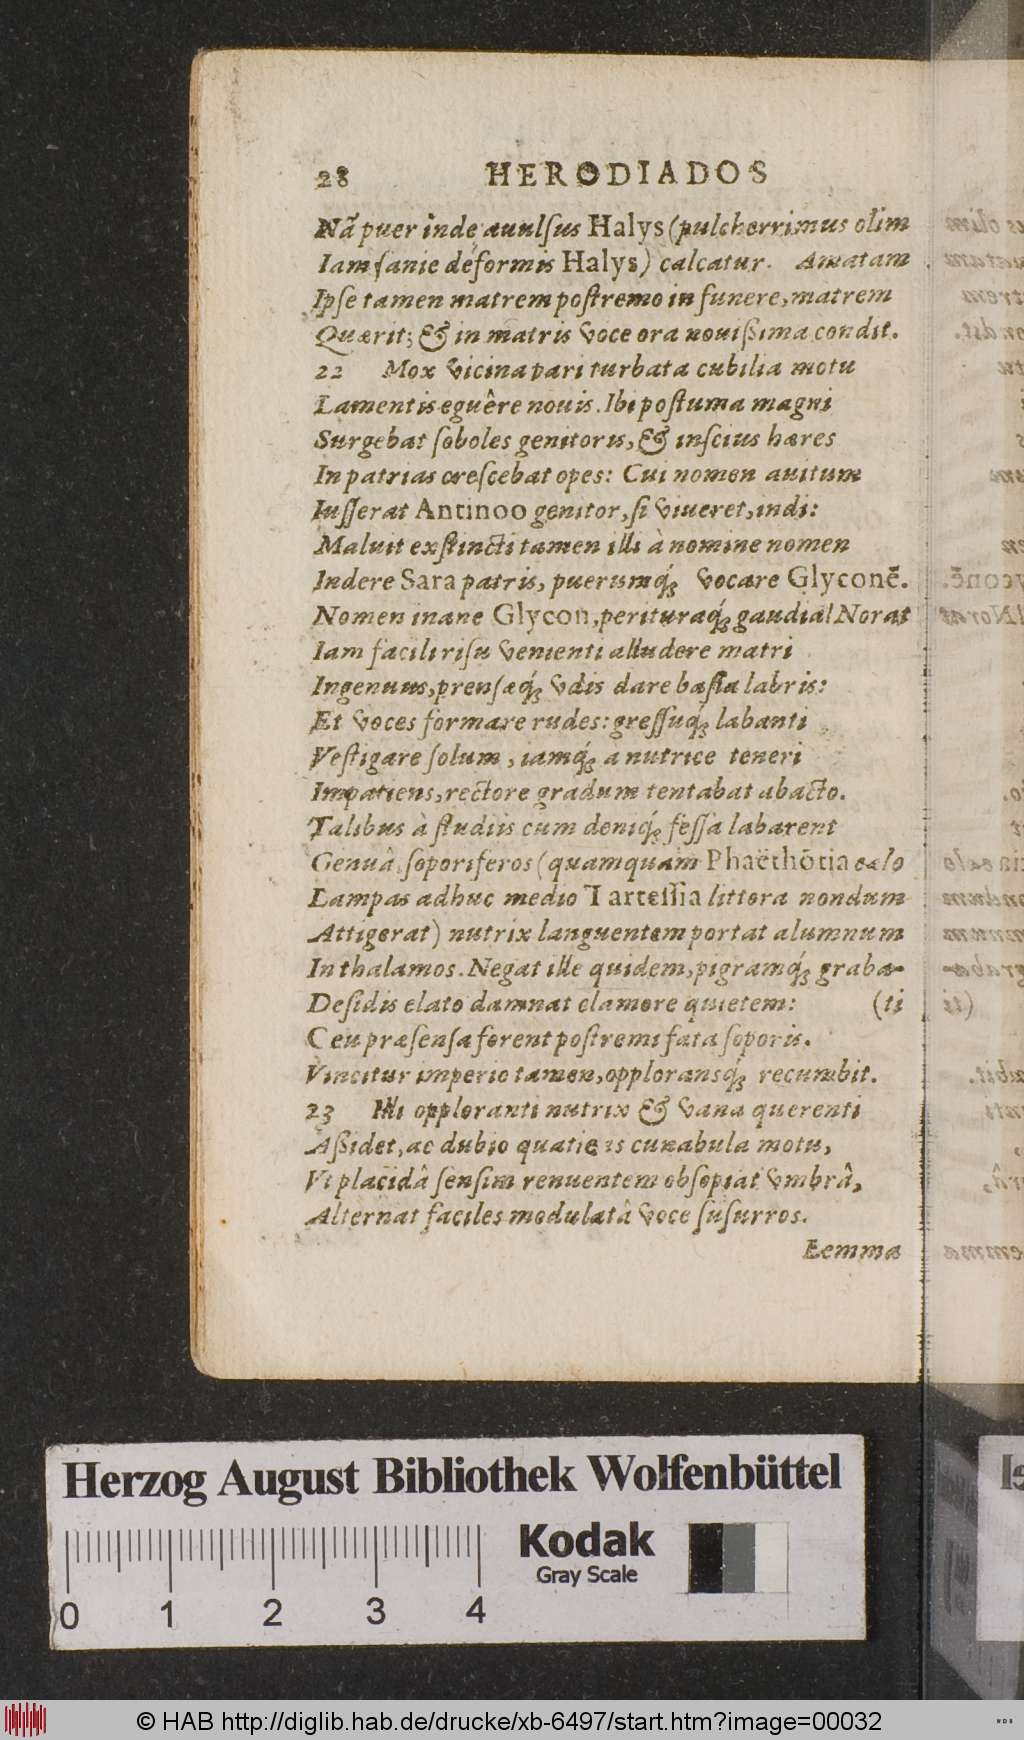 28 HERODIADOS
Nã puer inde auulsus Halys (pulcherrimus olim
Iam sanie deformis Halys) calcatur. Amatam
Ipse tamen matrem postremo in funere, matrem
Quærit; & in matris voce ora nouißima condit.
22 Mox vicina pari turbata cubilia motu
Lamentis eguêre nouis. Ibi postuma magni
Surgebat soboles genitoris, & inscius hæres
In patrias crescebat opes: Cui nomen auitum
Iusserat Antinoo genitor, si viueret, indi:
Maluit exstincti tamen illi à nomine nomen
Indere Sara patris, puerumq́; vocare Glyconē.
Nomen inane Glycon, perituraq́; gaudia! Norat
Iam facili risu venienti alludere matri
Ingenuus, prensæq́; vdis dare basia labris:
Et voces formare rudes: gressuq́; labanti
Vestigare solum, iamq́; a nutrice teneri
Impatiens, rectore gradum tentabat abacto.
Talibus à studiis cum deniq́; fessa labarent
Genua, soporiferos (quamquam Phaëthōtia cælo
Lampas adhuc medio Tartessia littora nondum
Attigerat) nutrix languentem portat alumnum
In thalamos. Negat ille quidem, pigramq́; graba-
Desidis elato damnat clamore quietem: (ti
Ceu præsensa forent postremi fata soporis.
Vincitur imperio tamen, opploransq́; recumbit.
23 Illi opploranti nutrix & vana querenti
Aßidet, ac dubio quatiens cunabula motu,
Vt placidâ sensim renuentem obsopiat vmbrâ,
Alternat faciles modulatâ voce susurros.
Lemma
Herzog August Bibliothek Wolfenbüttel
Kodak
Gray Scale
0 1 2 3 4
© HAB http://diglib.hab.de/drucke/xb-6497/start.htm?image=00032